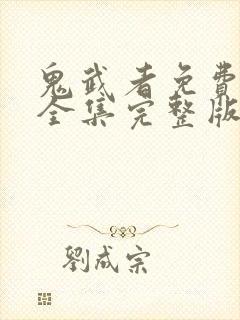 鬼武者免費
全集完整版
劉成宗